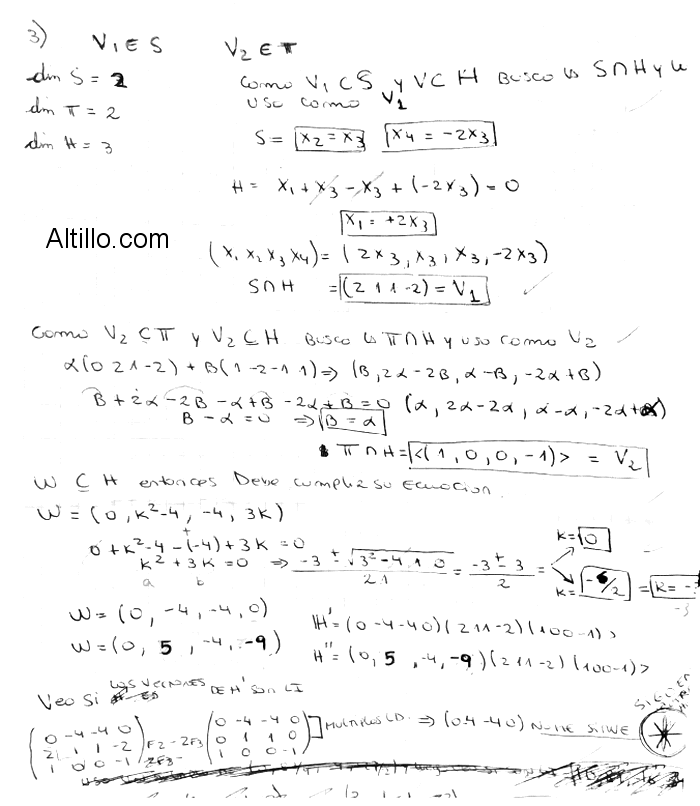 3) V₁ ∈ S V₂ ∈ π
dim S = 2
Como V₁ ⊂ S y V ⊂ H Busco S∩H y
uso como V₁
dim π = 2
dim H = 3
S = x₂ = x₃ x₄ = -2x₃
H = x₁ + x₃ - x₃ + (-2x₃) = 0
x₁ = +2x₃
Altillo.com
(x₁ x₂ x₃ x₄) = (2x₃, x₃, x₃, -2x₃)
S∩H = (2 1 1 -2) = V₁
Como V₂ ⊆ π y V₂ ⊆ H Busco π∩H y uso como V₂
α(0 2 1 -2) + B(1 -2 -1 1) ⇒ (B, 2α - 2B, α - B, -2α + B)
B + 2α - 2B - α + B - 2α + B = 0 (α, 2α - 2α, α - α, -2α + α)
B - α = 0 ⇒ B = α
π∩H = <(1, 0, 0, -1)> = V₂
W ⊆ H entonces Debe cumplir su Ecuacion.
W = (0, k² - 4, -4, 3k)
0 + k² - 4 - (-4) + 3k = 0
k² + 3k = 0 ⇒ -3 ± √3² - 4 1 0 / 2 1 = -3 ± 3 / 2 = k = 0 k = -6/2 = k = -3
a b
W = (0, -4, -4, 0)
W = (0, 5, -4, -9)
H' = (0 -4 -4 0) (2 1 1 -2) (1 0 0 -1)>
H'' = (0, 5, -4, -9) (2 1 1 -2) (1 0 0 -1)>
Veo si los vectores de H' son LI
(0 -4 -4 0
2 1 1 -2
1 0 0 -1) F2 - 2F3 (0 -4 -4 0
0 1 1 0
1 0 0 -1) Multiplos LD. ⇒ (0 4 -4 0) No me sirve